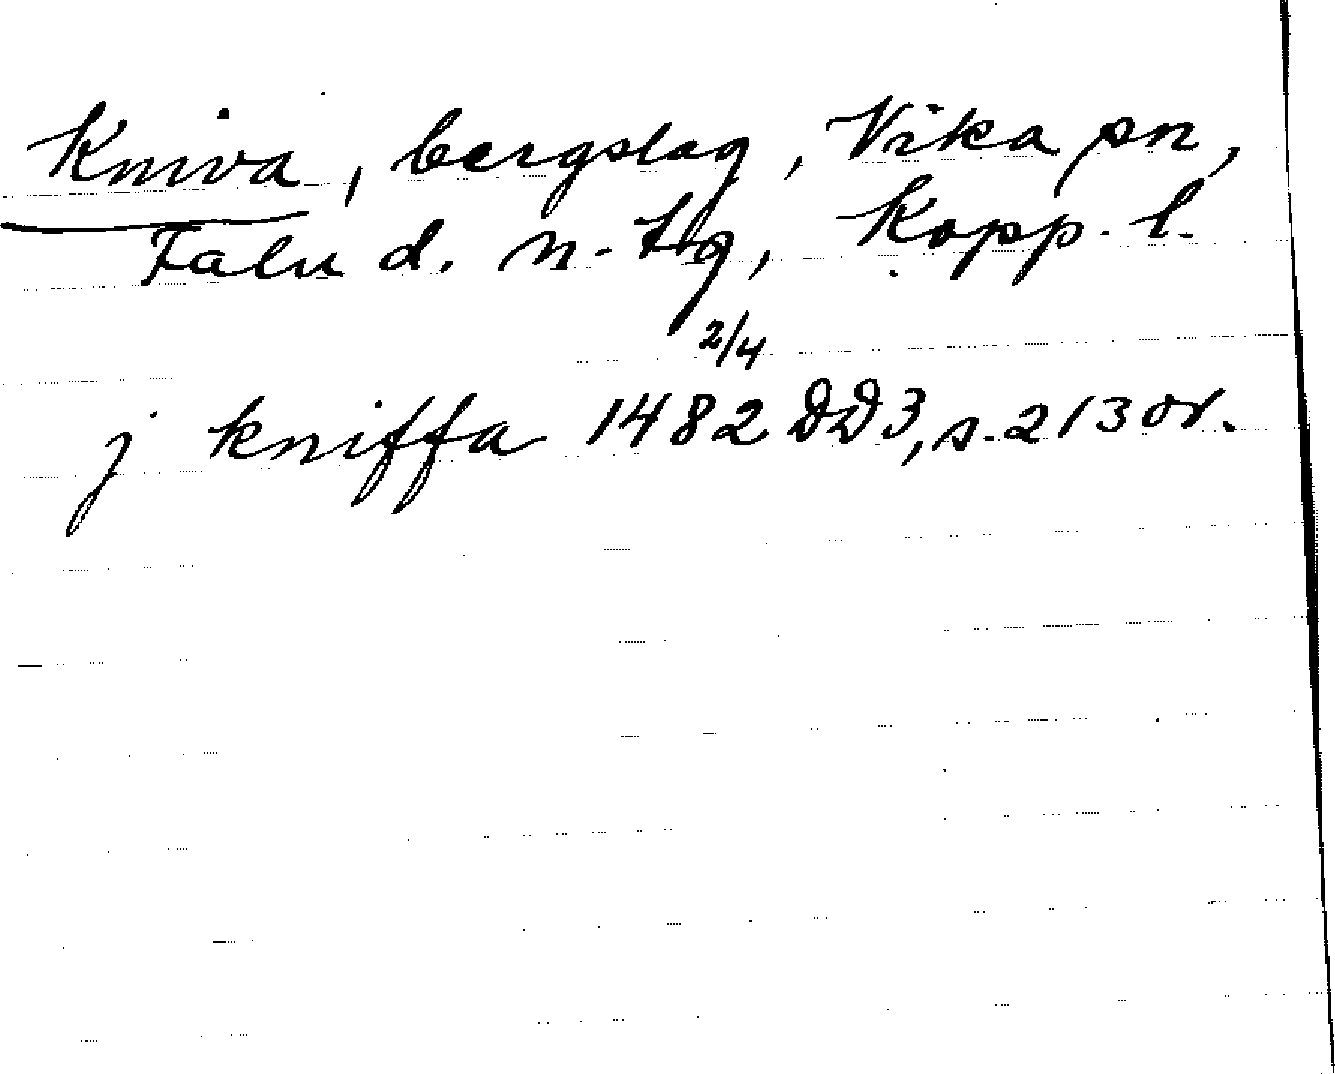 Kniva, bergslag, Vika sn,
Falu d. n. tg, Kopp. l.
2/4
j kniffa 1482 DD3, s. 213 or.